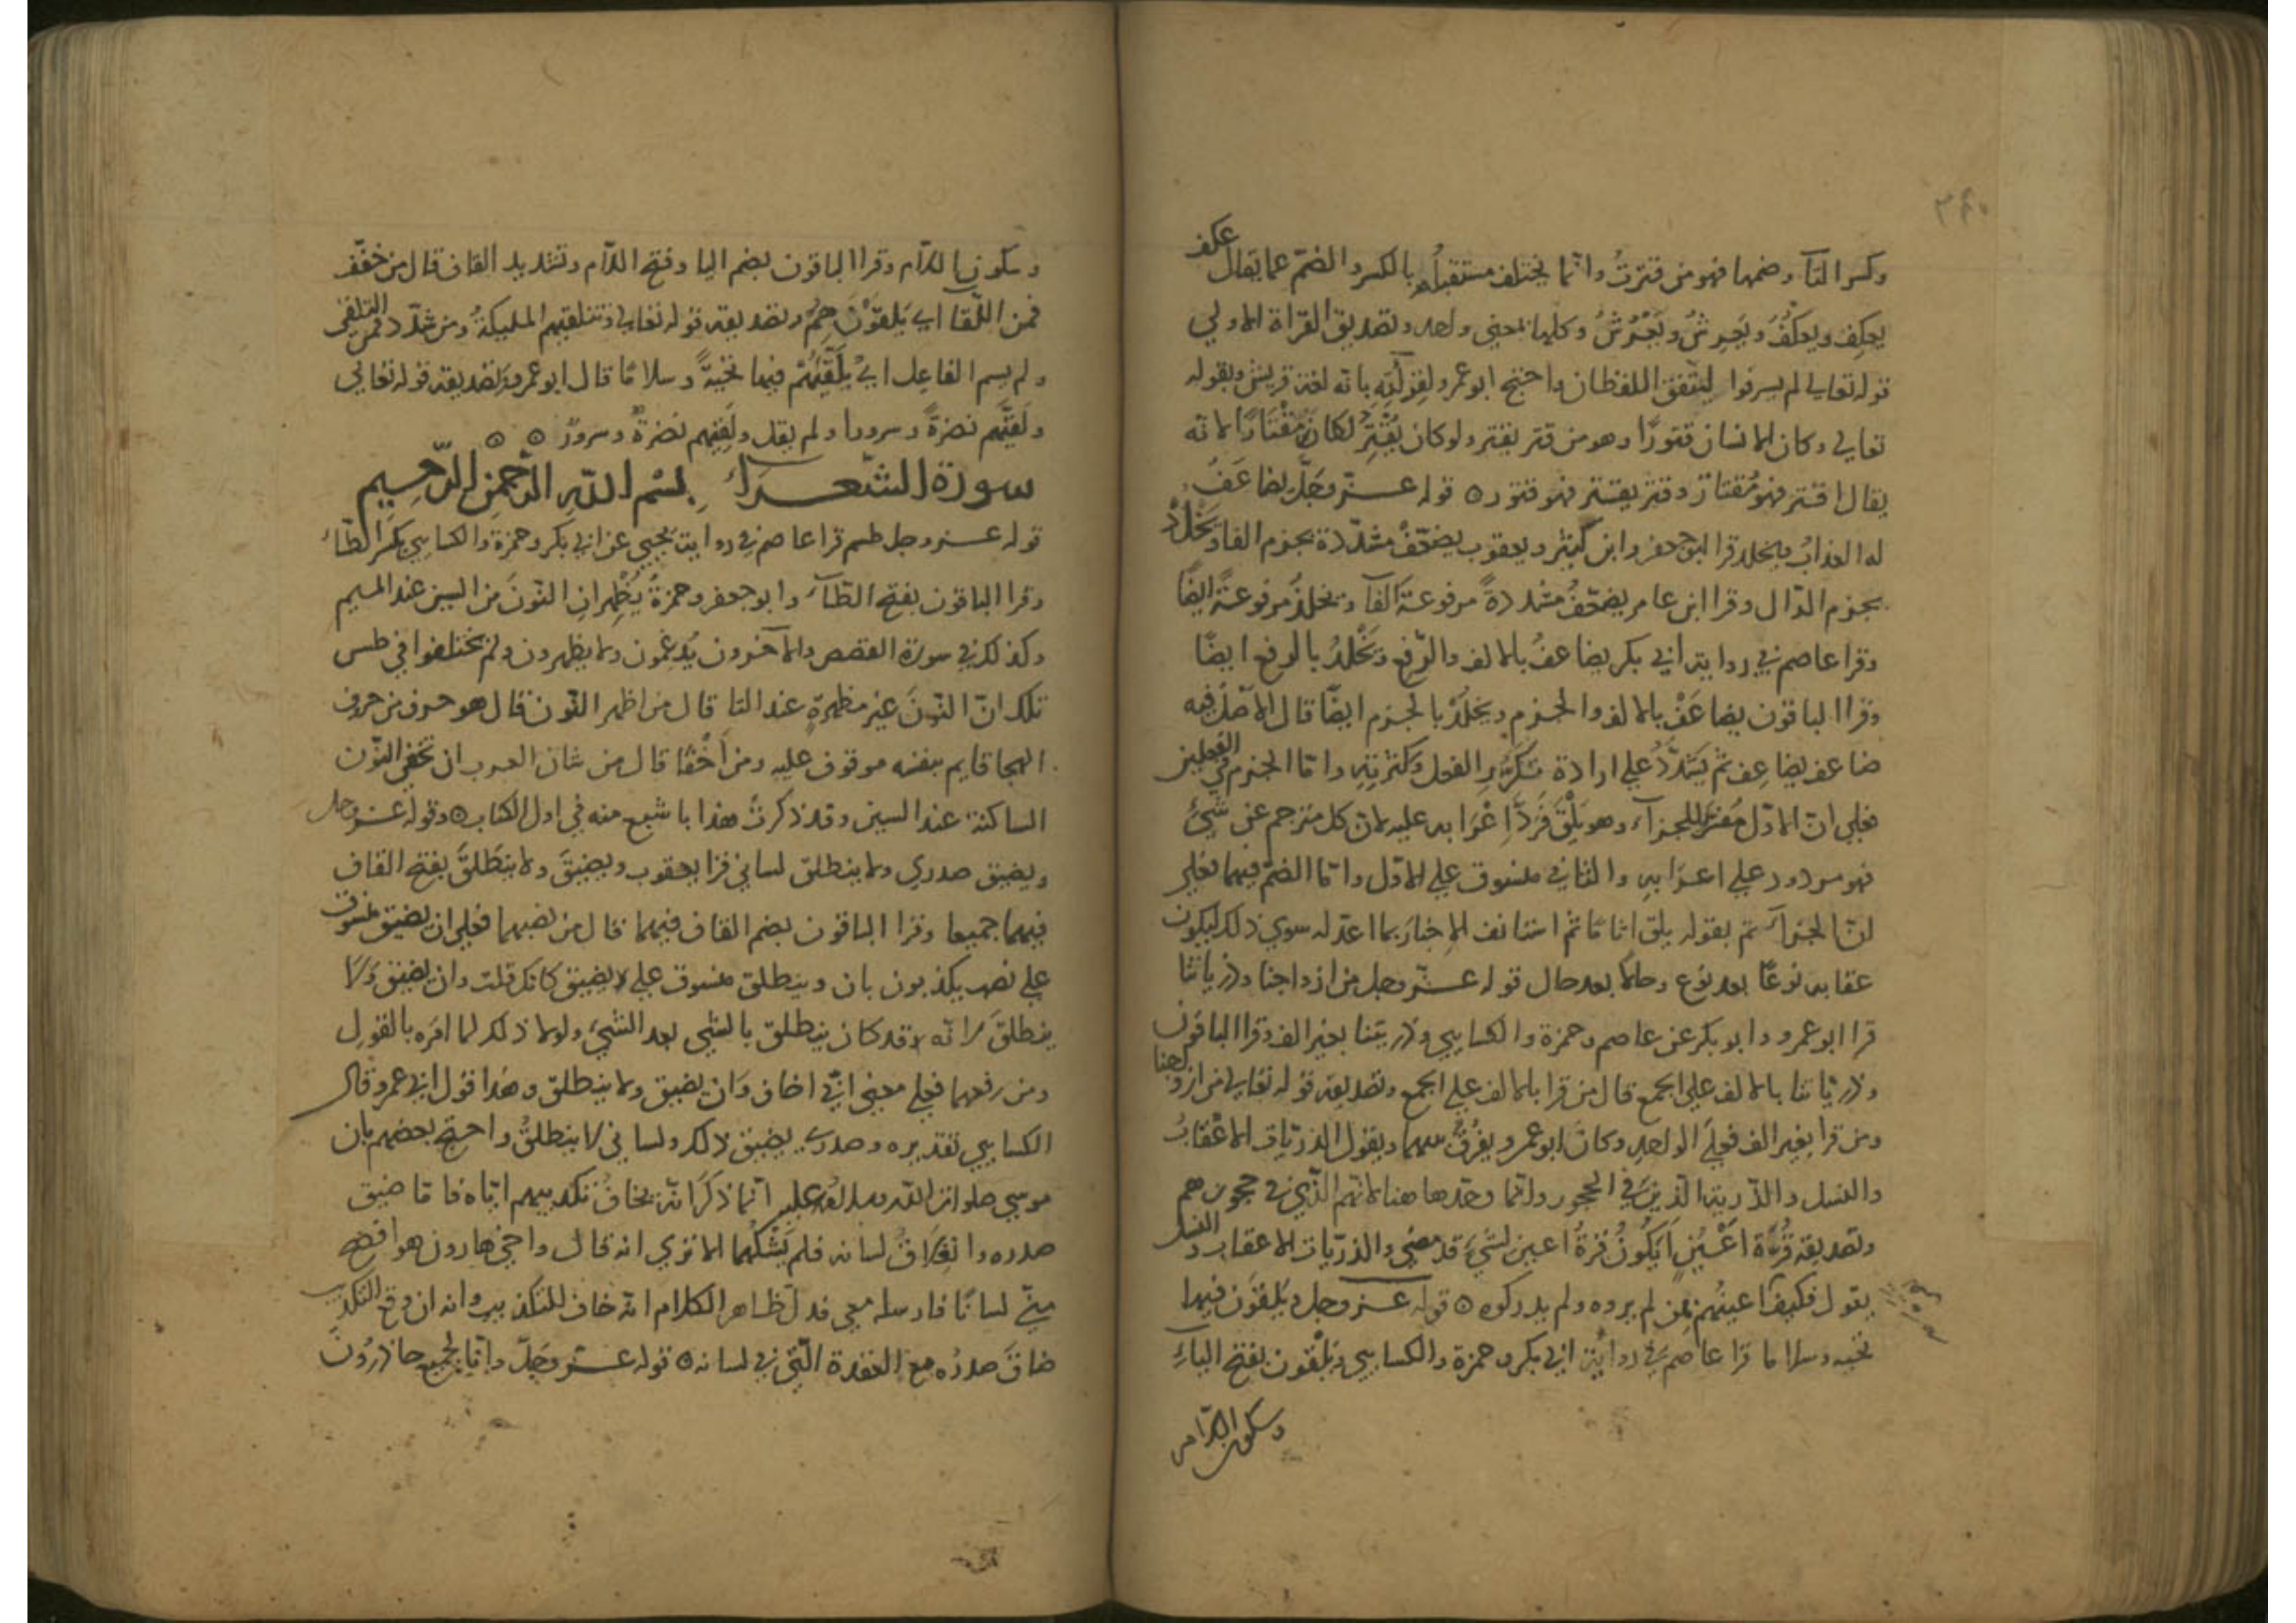 ٢٤٠
وكسر التآء وضمها فهو من قترتُ وانما يختلف مستقبلُه بالكسر والضمّ عما يقال عكف
يعكِف ويعكُفُ ويَجرِشُ ويَجْرُشُ وكلها بمعنى واحد وتصديق القراة الاولي
قوله تعالى لم يسرفوا ليتفق اللفظان واحتج ابو عمرو لقراته بانه لغة قريش وبقوله
تعالى وكان الانسان قتورًا وهو من قتر يقتر ولو كان يُقْتِرُ لكان مُقْتارًا لانه
يقال اقتر فهو مُقتار وقتر يقتر فهو قتور ٥ قوله عزّ وجَلّ يضاعَفُ
له العذابُ ويخلد قرا ابو جعفر وابن كثير ويعقوب يضعّفْ مشدّدة بجزم الفا ويَخْلُدْ
بجزم الدّال وقرا ابن عامر يضعّفُ مشددةً مرفوعة الفآء ويخلدُ مرفوعة ايضًا
وقرا عاصم في رواية ابي بكر يضاعفُ بالالف والرّفع ويَخْلُدُ بالرفع ايضًا
وقرا الباقون يضاعَفْ بالالف والجزم ويخلُدْ بالجزم ايضًا قال الاصل فيه
ضاعف يضاعِف ثم يَشدّدُ على ارادة تكرّرِ الفعل وكثرتِه واما الجزم في الفعلين
فعلى انّ الاوّل مُفَسّر للجزآء وهو يَلْقَ فَرَدَّ اِعْرَابه عليه لان كل مترجم عن شَيْءٍ
فهو مردود على اعرَابه والثاني منسوق على الاوّل واما الضمّ فيهما فعلى
انّ الجزآء تم بقوله يلق اثامًا ثم استانف الاخبارَ بما اعدّ له سوي ذلك ليكون
عقابه نوعًا بعد نوع وحالًا بعد حال قوله عزّ وجل من ازواجنا وذرياتنا
قرا ابو عمرو وابو بكر عن عاصم وحمزة والكسايي وذريتنا بغير الف وقرا الباقون
وذريّاتنا بالالف على الجمع قال من قرا بالالف على الجمع وتصديقه قوله تعالى من ازواجنا
ومن قرا بغير الف فعلَى الواحد وكانَ ابو عمرو يفرُق بينهما ويقول الذريّات الاعْقَابُ
والنسل والذّرية الّذينَ في الحجور وانما وحّدها هنا لانهم الّذي في حجورهم
وتصديقه قُرّةَ اَعْيُنٍ اَيكُونُ قرةُ اعين لشيءٍ قد مضي والذرّيات الاعقاب والنسل
يقول فكيف اعينُهم بمن لم يروه ولم يدركوه ٥ قوله عزّ وجل ويُلقّون فيها
تحية وسلاما قرا عاصم في رواية ابي بكر وحمزة والكسايي ويَلْقَون بفتح الياءِ
وسكون اللام
وسكون اللّام وقرا الباقون بضم اليا وفتح اللّام وتشديد القاف قال من خفّف
فمن اللّقا اي يَلقَوْنَ وتصديقه قوله تعالى وتتلقيهم المليكةُ ومن شدّد فمن التلقي
ولم يسم الفاعل اي يُلَقّيهُمْ فيها تحيةً وسلامًا قال ابو عمرو وتصديقه قوله تعالى
ولَقّيَهم نضرةً وسرورا ولم يقل ولَقِيَهم نضرةٌ وسرورٌ ٥ ٥
سورة الشعراء بسم الله الرحمن الرحيم
قوله عز وجل طسم قرا عاصم في رواية يحيي عن ابي بكر وحمزة والكسايي بكسر الطّاء
وقرا الباقون بفتح الطّآء وابو جعفر وحمزةُ يُظْهِرانِ النّونَ من السين عند الميم
وكذلك في سورة القصص والآخرون يُدغمُون ولا يظهرون ولم يختلفوا في طس
تلك انّ النّونَ غير مظهرةٍ عند التا قال من اظهر النّون قال هو حرف من حروف
الهجا قايم بنفسه موقوف عليه ومن اَخْفَا قال من شان العرب ان تخفي النّون
الساكنة عند السين وقد ذكرتُ هذا باشبع منه في اول الكتاب ٥ وقوله عزّ وجل
ويضيق صدري ولا ينطلق لساني قرا يعقوب ويضيقَ ولا ينطَلقَ بفتح القاف
فيهما جميعا وقرا الباقون بضم القاف فيهما قال من نصبهما فعلى ان يضيق منسوق
على نصب يكذبون بان وينطلق منسوق على يضيق كانك قلت وان يضيق ولا
ينطلقَ لانه قد كان ينطلق بالشي بعد الشيء ولولا ذلك لما امَره بالقول
ومن رفعهما فعلى معني انّي اخاف وَان يضيق ولا ينطلق وهذا قول ابي عمرو وقال
الكسايي تقديره وصدري يضيق لذلك ولساني لا ينطلقُ واحتج بعضهم بان
موسي صلوات الله عليه انما ذكَرَ انّه يخافُ تكذيبهم ايّاه فاما ضيق
صدره وانغلاقُ لسانه فلم يَشْكُهما الا تري انه قال واخي هارون هو افصح
منّي لسانًا فارسله معي فدلّ ظاهر الكلام انّه خاف للتكذيب وانه ان وقع التكذيب
ضاقَ صدرُه مع العقدة الّتي في لسانه ٥ قوله عزّ وجَلّ وانّا لجميع حاذرُونَ